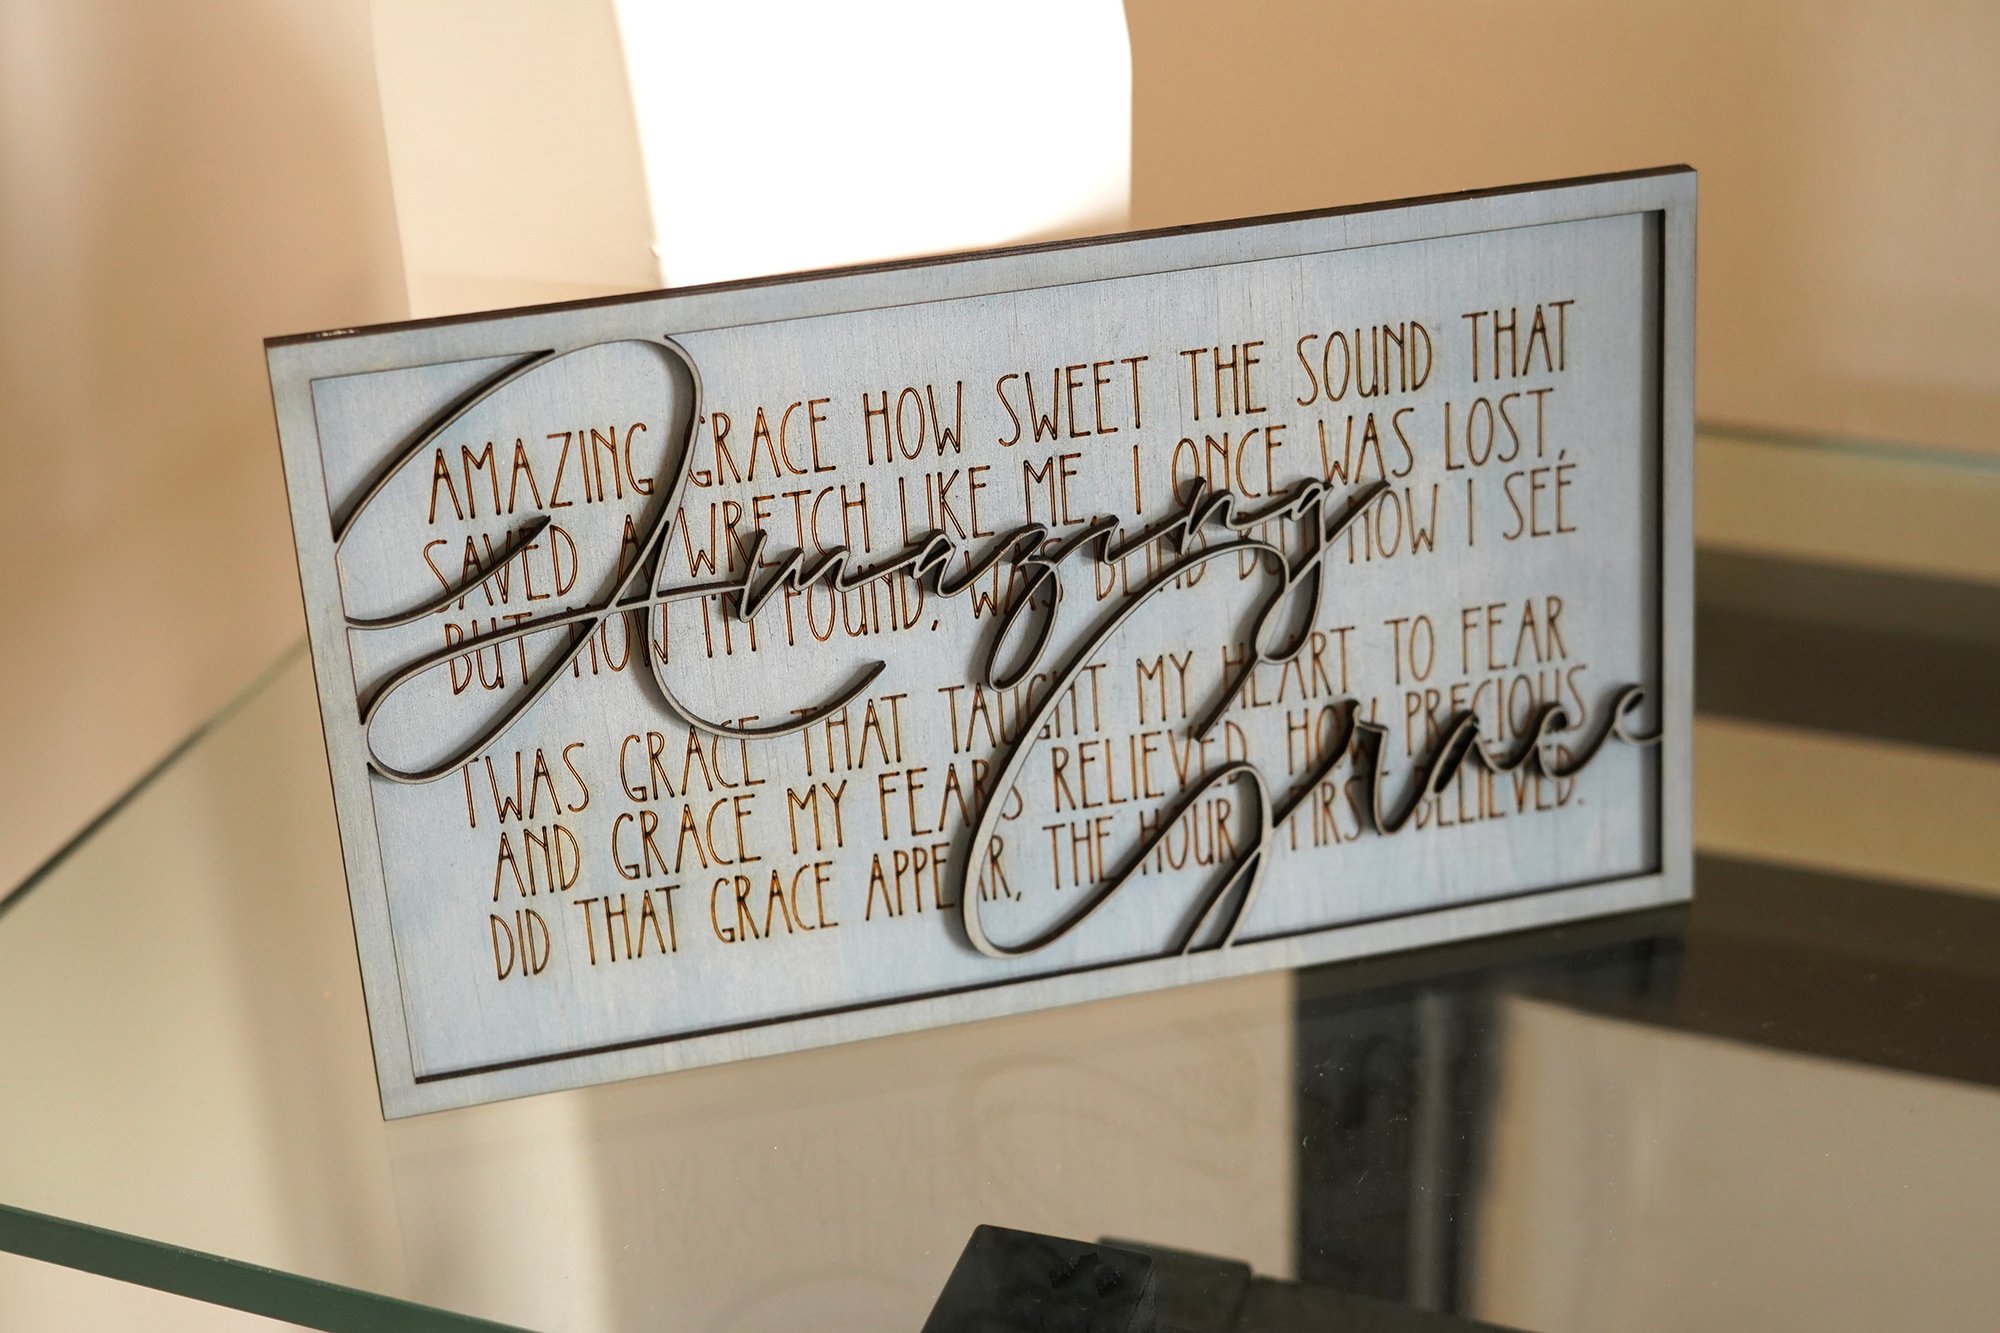 AMAZING GRACE HOW SWEET THE SOUND THAT
SAVED A WRETCH LIKE ME. I ONCE WAS LOST,
BUT NOW I'M FOUND, WAS BLIND BUT NOW I SEE
'TWAS GRACE THAT TAUGHT MY HEART TO FEAR
AND GRACE MY FEARS RELIEVED. HOW PRECIOUS
DID THAT GRACE APPEAR, THE HOUR I FIRST BELIEVED.
Amazing
Grace